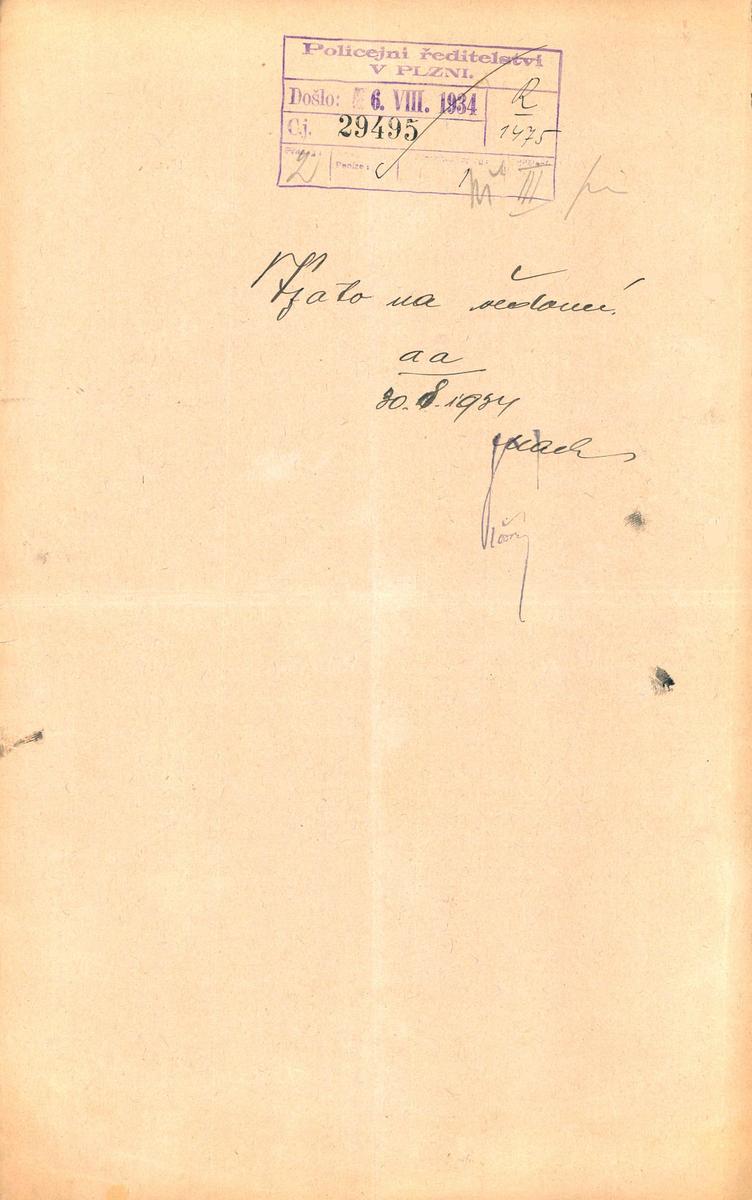 Policejní ředitelství
V PLZNI.
Došlo: 6. VIII. 1934
R
1475
Čj. 29495
2
Peníze:
III
Vzato na vědomí.
aa
30.8.1934